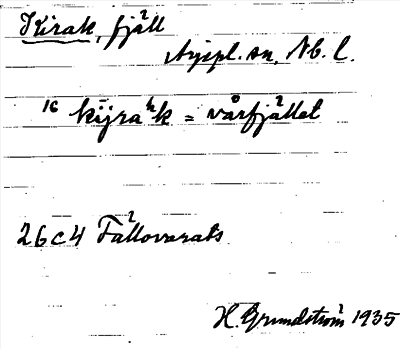 Kirak, fjäll
Arjepl. sn, Nb. l.
16 kijraʰk = vårfjället
26c4 Fållovarats
H. Grundström 1935